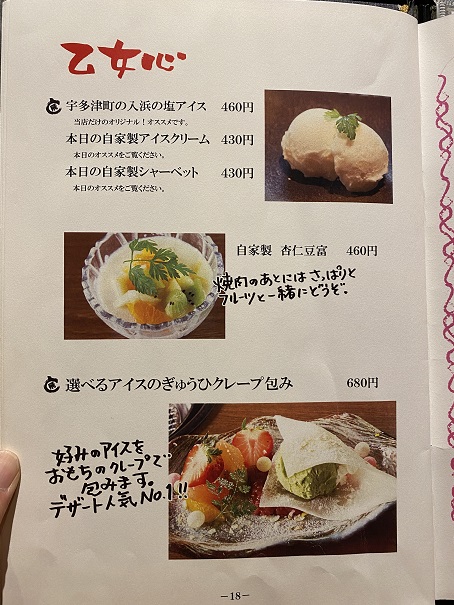 乙女心
宇多津町の入浜の塩アイス 460円
当店だけのオリジナル！オススメです。
本日の自家製アイスクリーム 430円
本日のオススメをご覧ください。
本日の自家製シャーベット 430円
本日のオススメをご覧ください。
自家製 杏仁豆富 460円
焼肉のあとにはさっぱりと
フルーツと一緒にどうぞ。
選べるアイスのぎゅうひクレープ包み 680円
好みのアイスを
おもちのクレープで
包みます。
デザート人気No.1!!
－18－